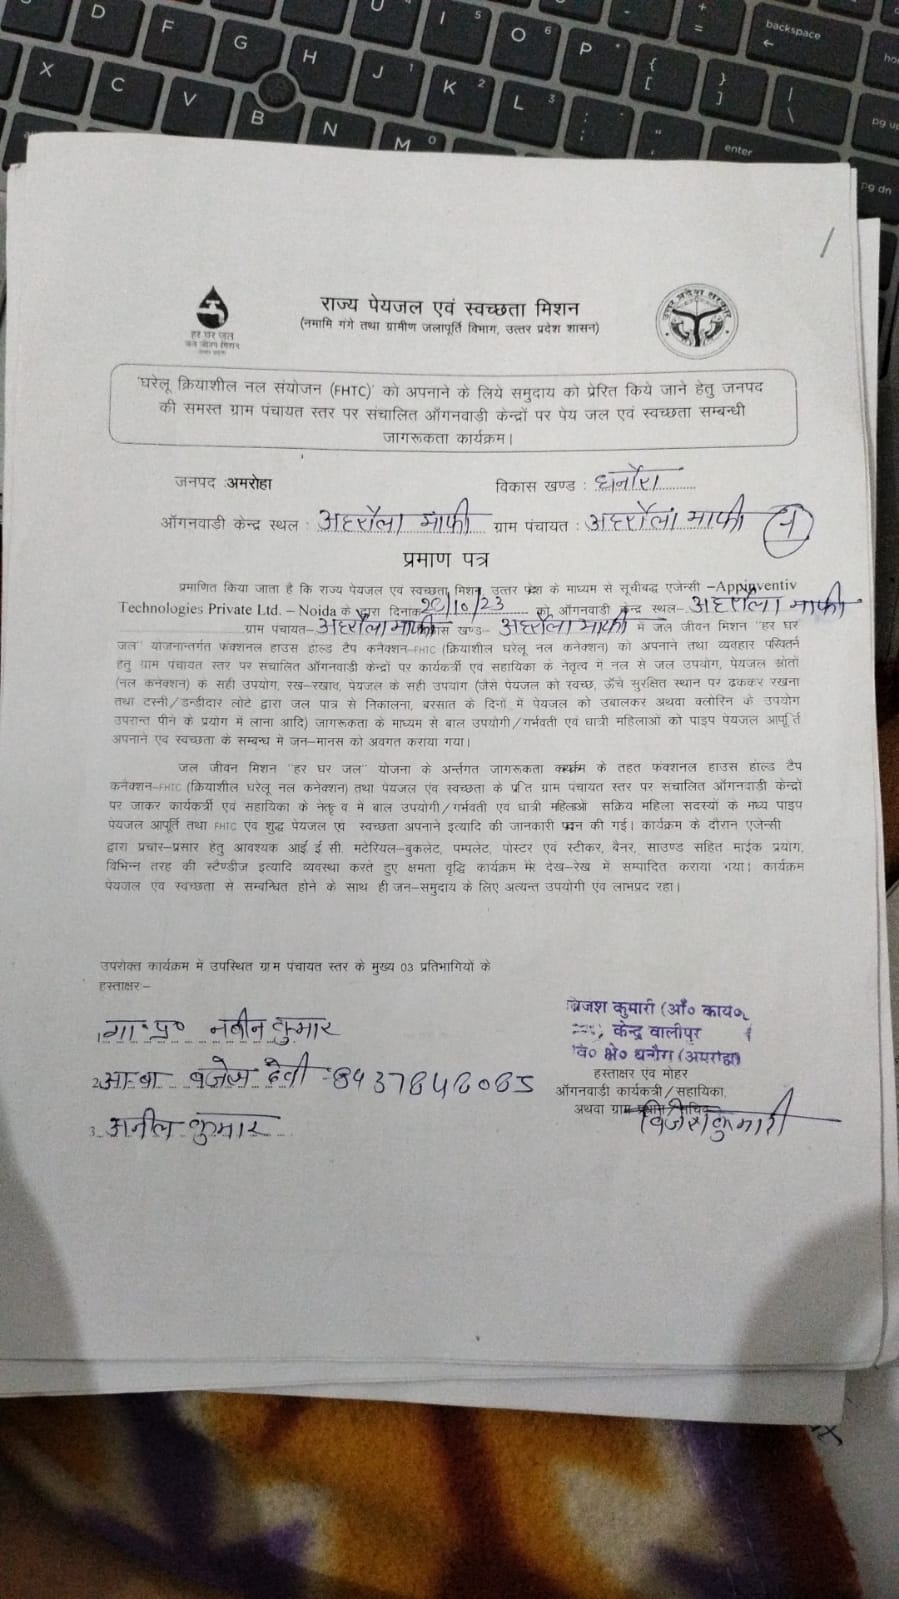 राज्य पेयजल एवं स्वच्छता मिशन
(नमामि गंगे तथा ग्रामीण जलापूर्ति विभाग, उत्तर प्रदेश शासन)
हर घर जल
जल जीवन मिशन
उत्तर प्रदेश सरकार
'घरेलू क्रियाशील नल संयोजन (FHTC)' को अपनाने के लिये समुदाय को प्रेरित किये जाने हेतु जनपद
की समस्त ग्राम पंचायत स्तर पर संचालित ऑंगनवाडी केन्द्रों पर पेय जल एवं स्वच्छता सम्बन्धी
जागरूकता कार्यक्रम।
जनपद :अमरोहा विकास खण्ड : धनौरा
ऑंगनवाडी केन्द्र स्थल : अहरौला माफी ग्राम पंचायत : अहरौला माफी
प्रमाण पत्र
प्रमाणित किया जाता है कि राज्य पेयजल एवं स्वच्छता मिशन, उत्तर प्रदेश के माध्यम से सूचीबद्ध एजेन्सी –Appinventiv
Technologies Private Ltd. – Noida के द्वारा दिनांक /10/23 को ऑंगनवाडी केन्द्र स्थल- अहरौला माफी
ग्राम पंचायत- अहरौला माफी खण्ड- अहरौला माफी में जल जीवन मिशन "हर घर
जल" योजनान्तर्गत फंक्शनल हाउस होल्ड टैप कनैक्शन-FHTC (क्रियाशील घरेलू नल कनेक्शन) को अपनाने तथा व्यवहार परिवर्तन
हेतु ग्राम पंचायत स्तर पर संचालित ऑंगनवाडी केन्द्रों पर कार्यकर्त्री एवं सहायिका के नेतृत्व में नल से जल उपयोग, पेयजल स्रोतों
(नल कनेक्शन) के सही उपयोग, रख-रखाव, पेयजल के सही उपयोग (जैसे पेयजल को स्वच्छ, ऊँचे सुरक्षित स्थान पर ढककर रखना
तथा टस्नी/डन्डीदार लोटे द्वारा जल पात्र से निकालना, बरसात के दिनों में पेयजल को उबालकर अथवा क्लोरिन के उपयोग
उपरान्त पीने के प्रयोग में लाना आदि) जागरूकता के माध्यम से बाल उपयोगी/गर्भवती एवं धात्री महिलाओं को पाइप पेयजल आपूर्ति
अपनाने एंव स्वच्छता के सम्बन्ध में जन-मानस को अवगत कराया गया।
जल जीवन मिशन "हर घर जल" योजना के अर्न्तगत जागरूकता कार्यक्रम के तहत फंक्शनल हाउस होल्ड टैप
कनैक्शन-FHTC (क्रियाशील घरेलू नल कनेक्शन) तथा पेयजल एंव स्वच्छता के प्रति ग्राम पंचायत स्तर पर संचालित ऑंगनवाडी केन्द्रों
पर जाकर कार्यकर्त्री एवं सहायिका के नेतृत्व में बाल उपयोगी/गर्भवती एवं धात्री महिलाओं सक्रिय महिला सदस्यों के मध्य पाइप
पेयजल आपूर्ति तथा FHTC एंव शुद्ध पेयजल एवं स्वच्छता अपनाने इत्यादि की जानकारी प्रदान की गई। कार्यक्रम के दौरान एजेन्सी
द्वारा प्रचार-प्रसार हेतु आवश्यक आई ई सी. मटेरियल-बुकलेट, पम्पलेट, पोस्टर एवं स्टीकर, बैनर, साउण्ड सहित माईक प्रयोग,
विभिन्न तरह की स्टैण्डीज इत्यादि व्यवस्था करते हुए क्षमता वृद्धि कार्यक्रम मेरे देख-रेख में सम्पादित कराया गया। कार्यक्रम
पेयजल एंव स्वच्छता से सम्बन्धित होने के साथ ही जन-समुदाय के लिए अत्यन्त उपयोगी एंव लाभप्रद रहा।
उपरोक्त कार्यक्रम में उपस्थित ग्राम पंचायत स्तर के मुख्य 03 प्रतिभागियों के
हस्ताक्षर:–
1. ग्रा॰प्र॰ नवीन कुमार
2. आशा देवी
3. अनील कुमार
ब्रिजेश कुमारी (आँ० कार्य०)
केन्द्र वालीपुर
वि० क्षे० धनौरा (अमरोहा)
हस्ताक्षर एंव मोहर
ऑंगनवाडी कार्यकत्री/सहायिका,
अथवा ग्राम प्रधान/सचिव
विजेशकुमारी
D F G H J 1 K 2 L 3
U I 5 O 6 P
X C V B N M 0
backspace
enter
pg up
pg dn